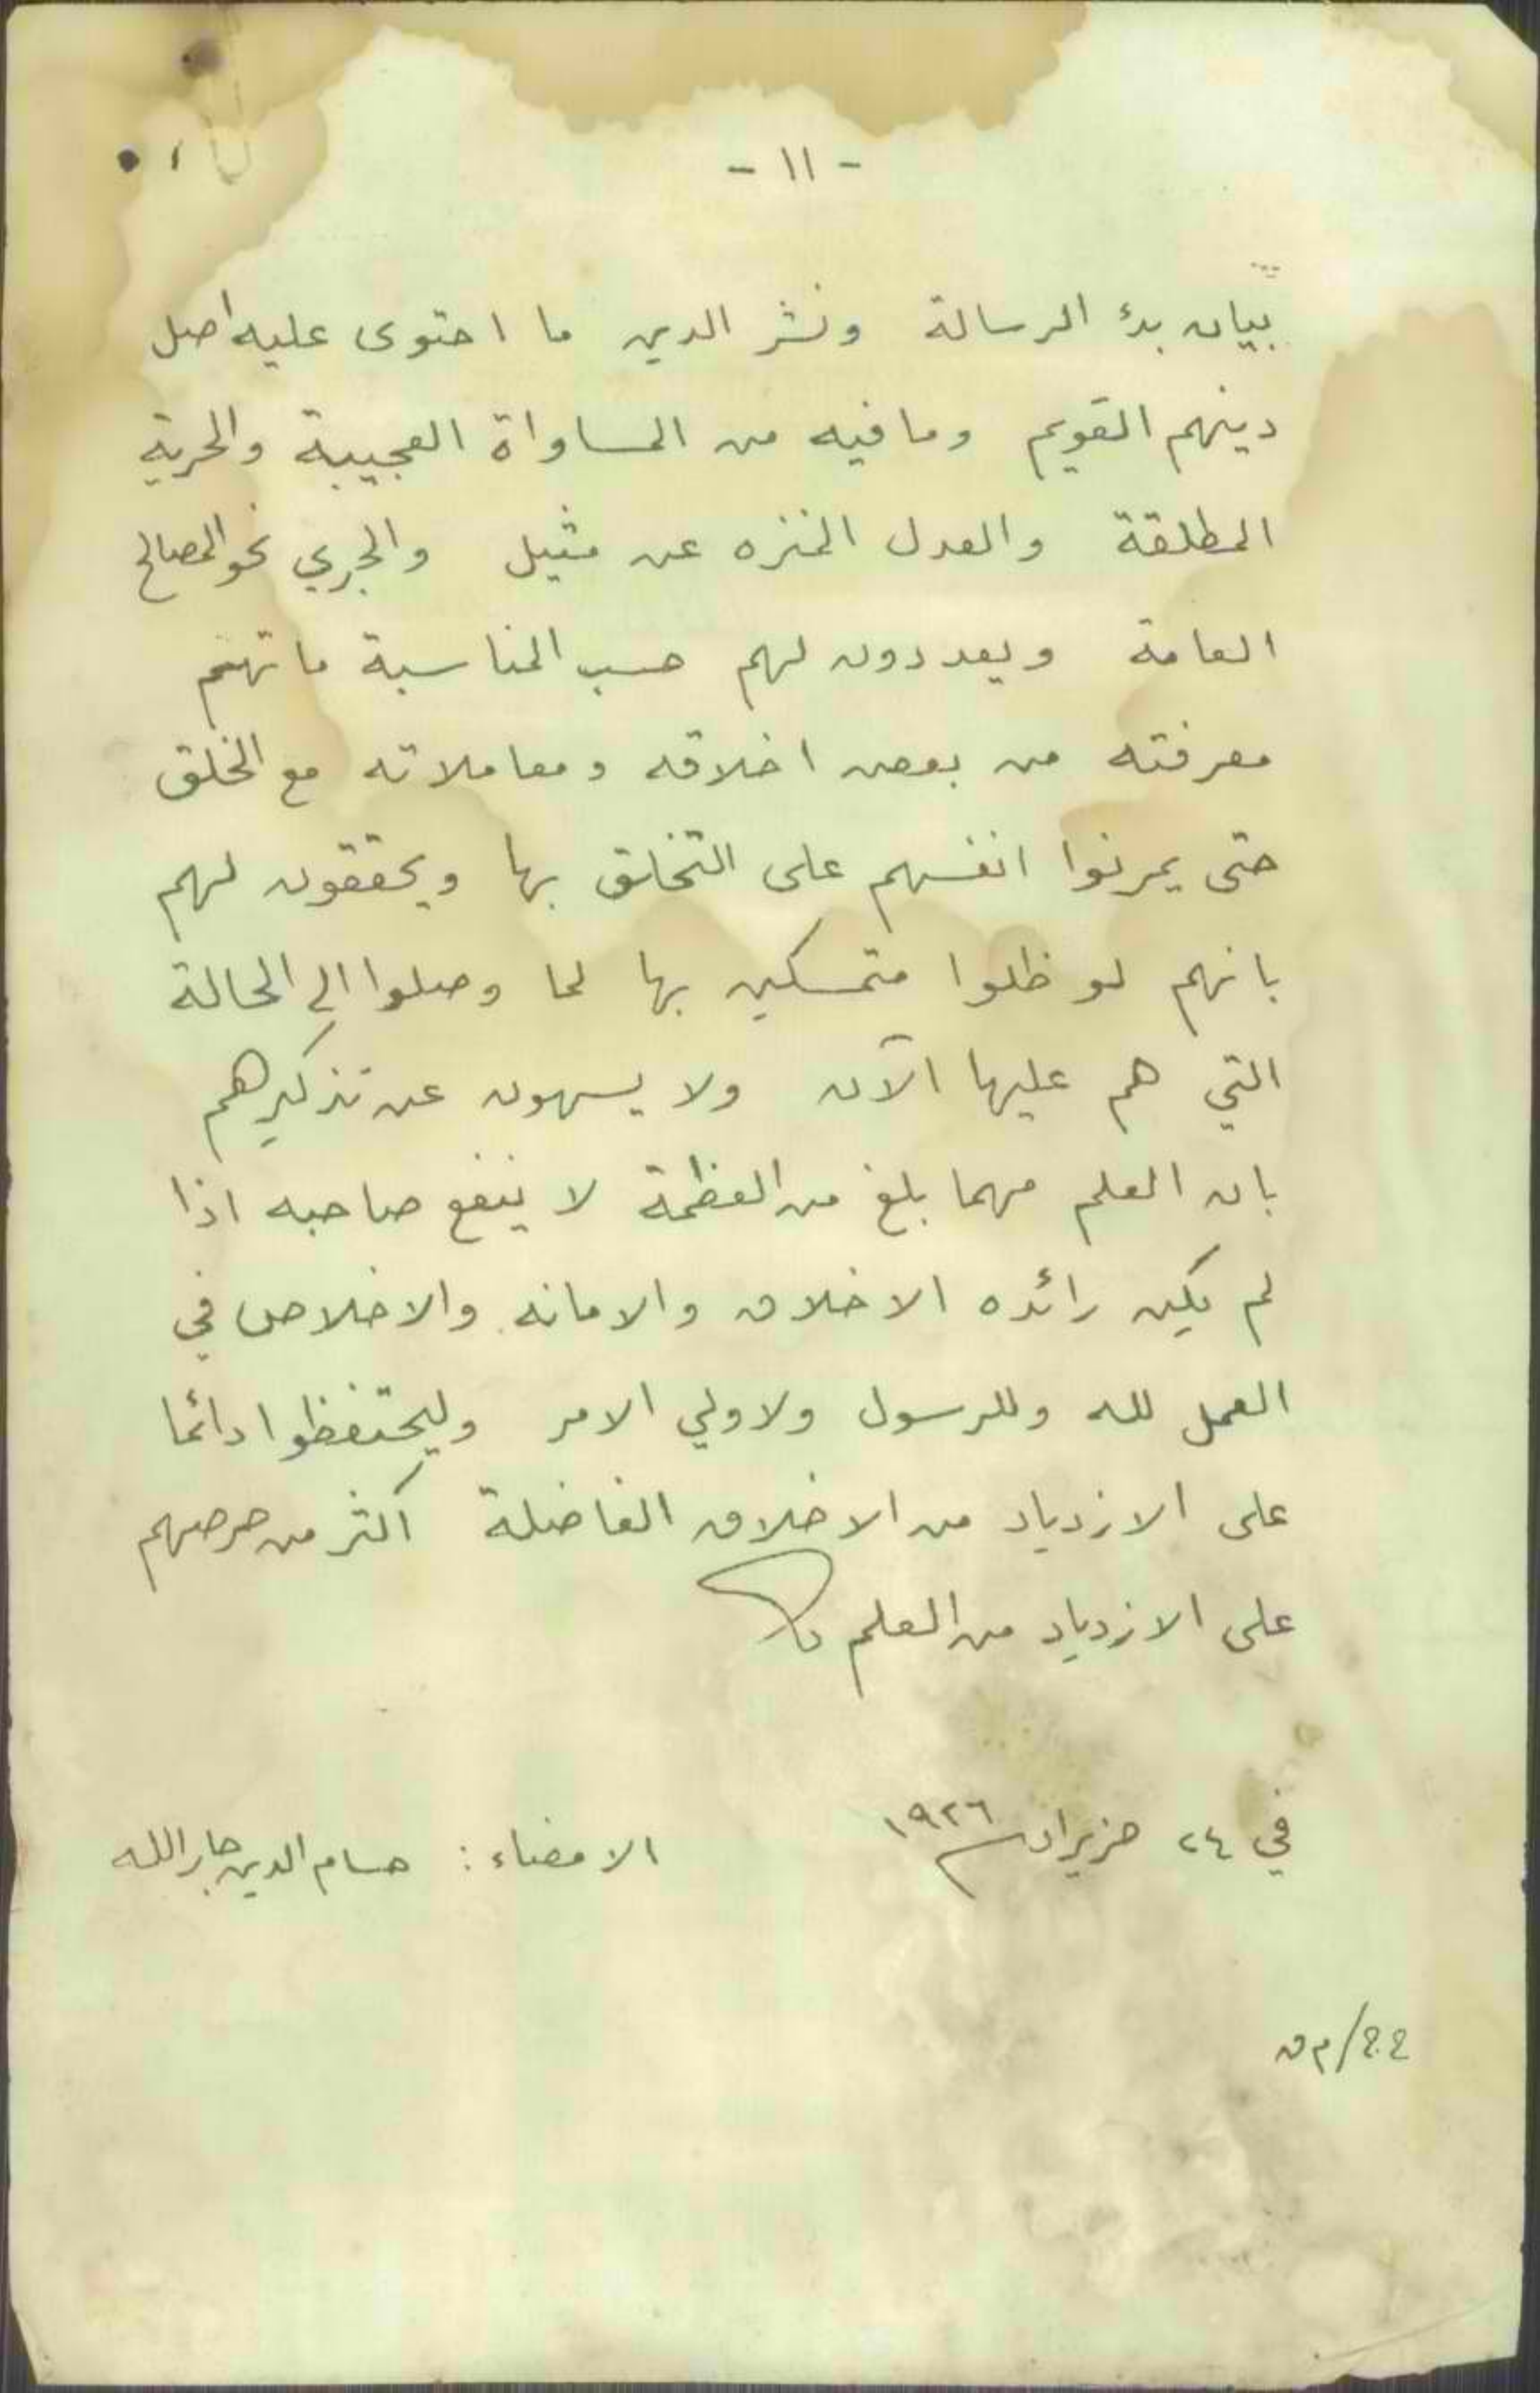 - ١١ -
بيان بدء الرسالة ونشر الدين ما احتوى عليه اصل
دينهم القويم وما فيه من المساواة العجيبة والحرية
المطلقة والعدل المنزه عن مثيل والجري نحو المصالح
العامة ويعددون لهم حسب المناسبة ما تهم
معرفته من بعض اخلاقه ومعاملاته مع الخلق
حتى يمرنوا انفسهم على التخلق بها ويحققون لهم
بانهم لو ظلوا متمسكين بها لما وصلوا الى الحالة
التي هم عليها الآن ولا يسهون عن تذكيرهم
بان العلم مهما بلغ من العظمة لا ينفع صاحبه اذا
لم يكن رائده الاخلاق والامانه والاخلاص في
العمل لله وللرسول ولاولي الامر وليحتفظوا دائما
على الازدياد من الاخلاق الفاضلة اكثر من حرصهم
على الازدياد من العلم
في ٢٤ حزيران ١٩٢٦
الامضاء : حسام الدين جارالله